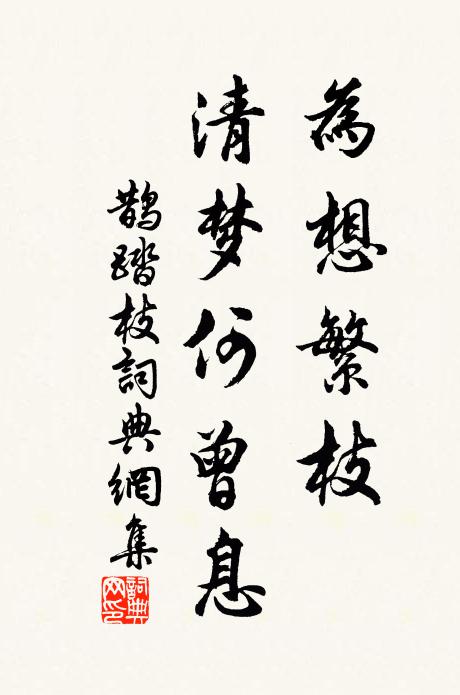 為想繁枝
清梦何曾息
鹊踏枝詞典網集
詞典网印